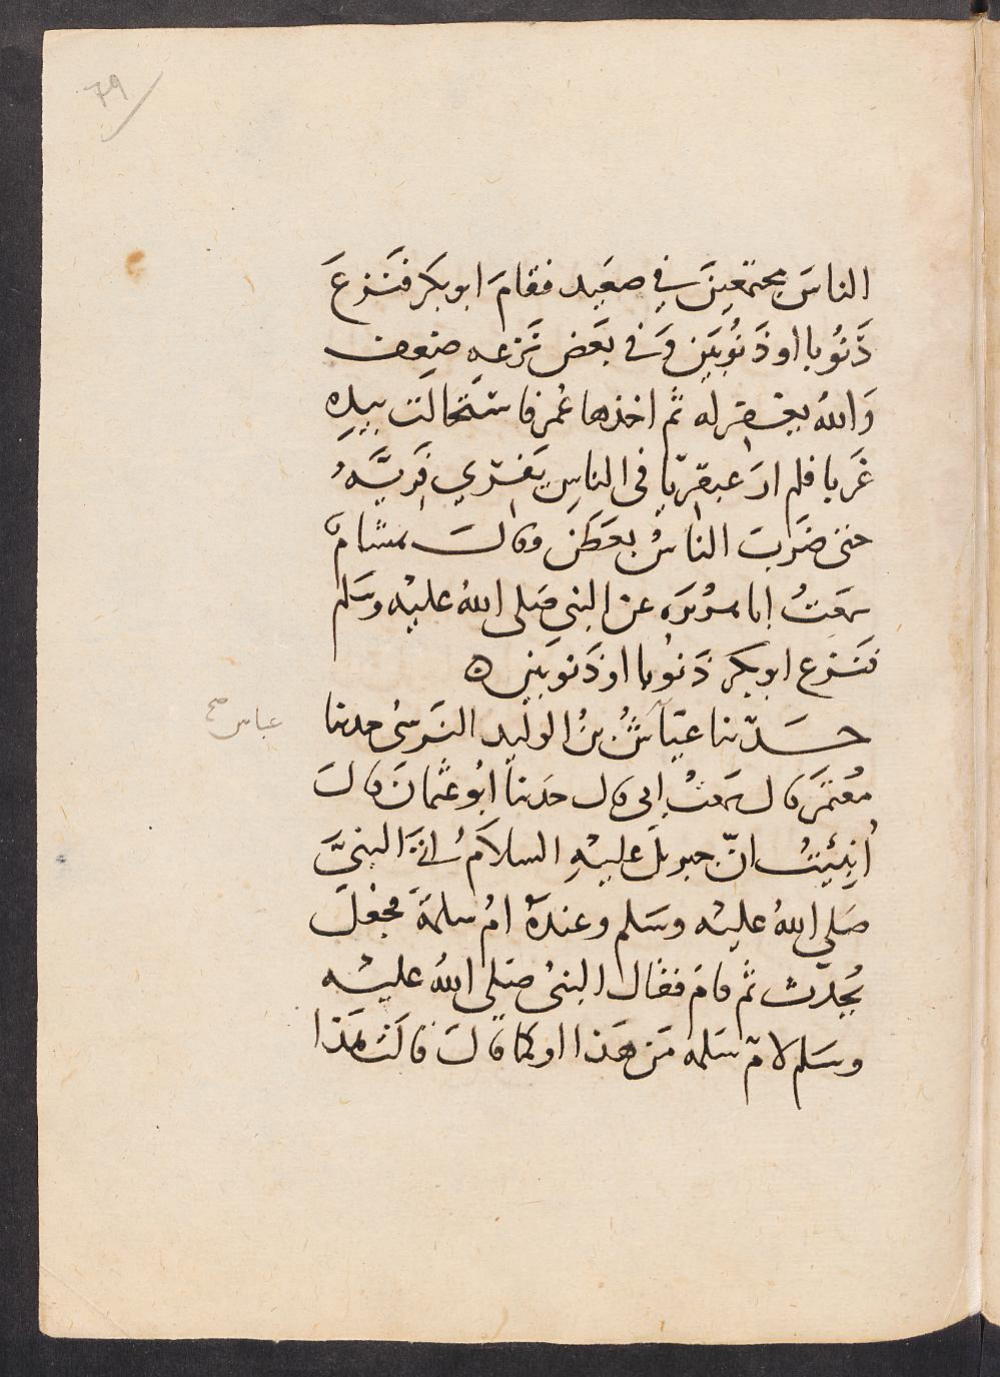 79
الناسَ مجتمعينَ في صعيد فقامَ ابو بكر فَنَزعَ
ذَنُوبا او ذَنُوبَين وَفي بعَض نَزعهِ ضعف
وَاللهُ يغفر له ثم اخذها عُمر فاستَحالَت بيدِه
غَربا فلم ارَ عبقريّا في الناس يَفري فَرِيَّهُ
حتى ضَربَ الناسُ بعَطَن وقالَ همام
سَمعتُ ابا هريرة عن النبي صَلى اللهُ عليه وسَلم
فنَزع ابو بكر ذَنوُبا او ذَنوبَين ه
حَدّثنا عيّاشُ بنُ الوليد النَرسيُ حدثنا
عباس صح
مُعتمَر قال سَمعتُ ابي قال حَدثنا ابُو عثمانَ قالَ
أنبِئتُ انّ جبريلَ عليهِ السلامُ اتى النبيَّ
صَلى اللهُ عليه وسَلم وعندَهُ امُ سلمةَ فجعلَ
يُحدّث ثم قامَ فقال النبيُ صَلى اللهُ عليه
وسَلم لامّ سَلمه مَن هَذا او كما قالَ قالَت هَذا